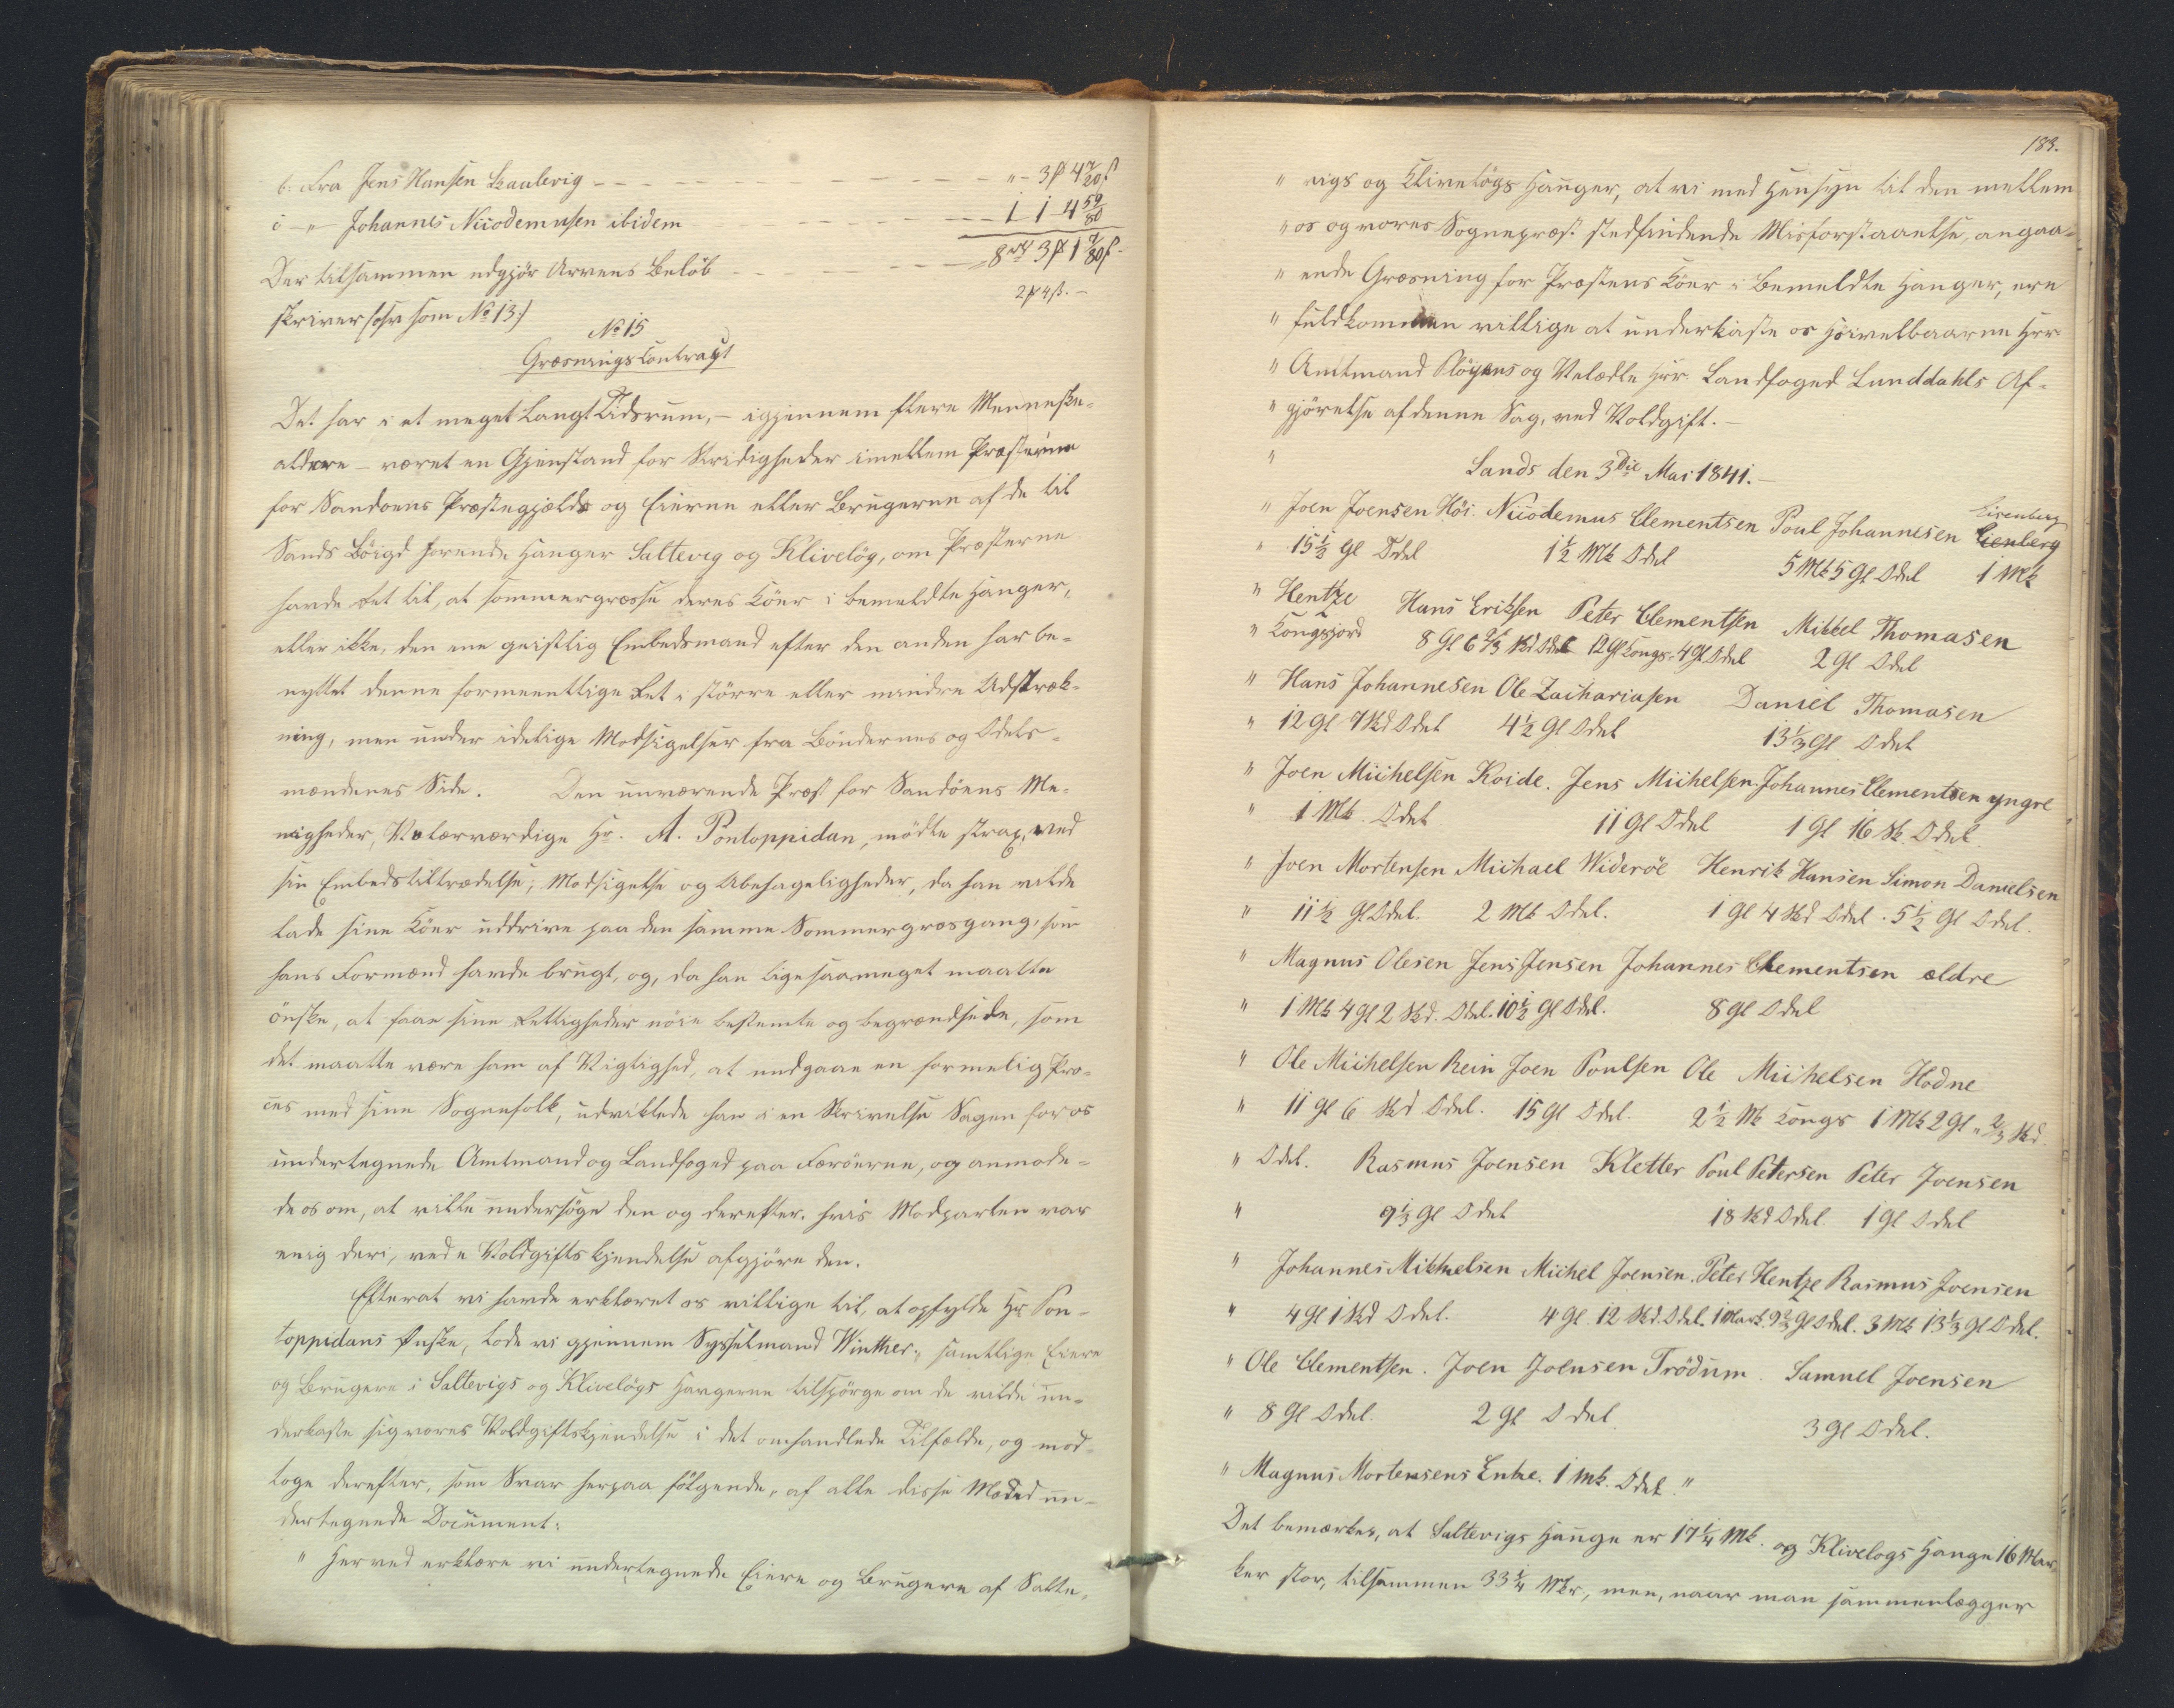 b. Fra Jens Hansen Skaalevig - - - " - 3 ꝑ 4 7/20 ß
c - " - Johannes Nicodemusen ibidem - - - 1 1 4 59/80
Der tilsammen udgjör Arvens Beløb - - - 8 rd 3 ꝑ 1 7/80 ß.
skriver (osv som No 13.) 2 ꝑ 4 ß. -
No 15
Græsningscontract
Det har i et meget langt Tidsrum, - igjennem flere Menneske-
aldere - været en Gjenstand for Stridigheder imellem Præsterne
for Sandöens Præstegjæld og Eierne eller Brugerne af de til
Sands Böigd hørende Hauger Saltevig og Kliveløg, om Præsterne
havde Ret til, at sommergræsse deres Köer i bemeldte Hauger,
eller ikke, den ene geistlig Embedsmand efter den anden har be-
nyttet denne formeentlige Ret i större eller mindre Udstræk-
ning, men under idelige Modsigelser fra Böndernes og Odels-
mændenes Side. Den nuværende Præst for Sandöens Me-
nigheder, Velærværdige Hr. A. Pontoppidan, mödte strax, ved
sin Embedstiltrædelse, Modsigelse og Ubehageligheder, da han vilde
lade sine Köer uddrive paa den samme Sommergræsgang, som
hans Formænd havde brugt, og, da han ligesaameget maatte
önske, at faae sine Rettigheder nöie bestemte og begrændsede, som
det maatte være ham af Vigtighed, at undgaae en formelig Pro-
ces med sine Sognefolk, udviklede han i en Skrivelse Sagen for os
undertegnede Amtmand og Landfoged paa Færöerne, og anmode-
de os om, at ville undersöge den og derefter, hvis Modparten var
enig deri, ved Voldgifts Kjendelse afgjöre den.
Efterat vi havde erklæret os villige til, at opfylde Hr. Pon-
toppidans Önske, lode vi gjennem Sysselmand Winther, samtlige Eiere
og Brugere i Saltevigs og Kliveløgs Haugerne tilspörge om de vilde un-
derkaste sig vores Voldgiftskjendelse i det omhandlede Tilfælde, og mod-
toge derefter, som Svar herpaa fölgende, af alle disse Mænd un-
dertegnede Document:
" Herved erklære vi undertegnede Eiere og Brugere af Salte-
183.
" vigs og Kliveløgs Hauger, at vi med Hensyn til den mellem
" os og vores Sognepræst stedfindende Misforstaaelse, angaa-
" ende Græsning for Præstens Köer i bemeldte Hauger, ere
" fuldkommen villige at underkaste os Höivelbaarne Hrr.
" Amtmand Plöyens og Velædle Hrr. Landfoged Lunddahls Af-
" gjörelse af denne Sag, ved Voldgift. -
" Sands den 3die Mai 1841. -
" Joen Joensen Höi. Nicodemus Clementsen Poul Johannesen Eisenberg
" 15 1/2 Gl Odel 1 1/2 Mk Odel 5 Mk 5 Gl Odel 1 Mk
" Hentze Hans Eriksen Peter Clementsen Mikkel Thomasen
" Kongsjord 8 Gl 6 2/3 Skd Odel 12 Gl Kongs- 4 Gl Odel 2 Gl Odel
" Hans Johannesen Ole Zachariasen Daniel Thomasen
" 12 Gl 7 Skd Odel 4 1/2 Gl Odel 13 1/3 Gl Odel
" Joen Michelsen Koide. Jens Michelsen. Johannes Clementsen yngre
" 1 Mk. Odel 11 Gl Odel 1 Gl 16 Sk. Odel.
" Joen Mortensen Michael Wideröe Henrik Hansen Simon Danielsen
" 11 1/2 Gl Odel. 2 Mk Odel. 1 Gl 4 Skd Odel. 5 1/2 Gl Odel.
" Magnus Olesen Jens Jensen Johannes Clementsen ældre
" 1 Mk 4 Gl 2 Skd. Odel. 10 1/2 Gl Odel. 8 Gl Odel
" Ole Michelsen Rein Joen Poulsen Ole Michelsen Hodne
" 11 Gl 6 Skd Odel. 15 Gl Odel. 2 1/2 Mk Kongs 1 Mk 2 Gl " 2/3 Skd.
" Odel. Rasmus Joensen Kletter Poul Petersen Peter Joensen
" 9 1/3 Gl Odel 18 Skd Odel 1 Gl Odel
" Johannes Mikkelsen Michel Joensen. Peter Hentze Rasmus Joensen
" 4 Gl 1 Skd Odel. 4 Gl 12 Skd. Odel. 1 Mark 9 2/3 Gl Odel. 3 Mk 13 1/3 Gl Odel.
" Ole Clementsen. Joen Joensen Trödum. Samuel Joensen
" 8 Gl Odel. 2 Gl Odel 3 Gl Odel.
" Magnus Mortensens Enke. 1 Mk. Odel. "
Det bemærkes, at Saltevigs Hauge er 17 1/4 Mk. og Klivelogs Hauge 16 Mar-
ker stor, tilsammen 33 1/4 Mkr, men, naar man sammenlægger